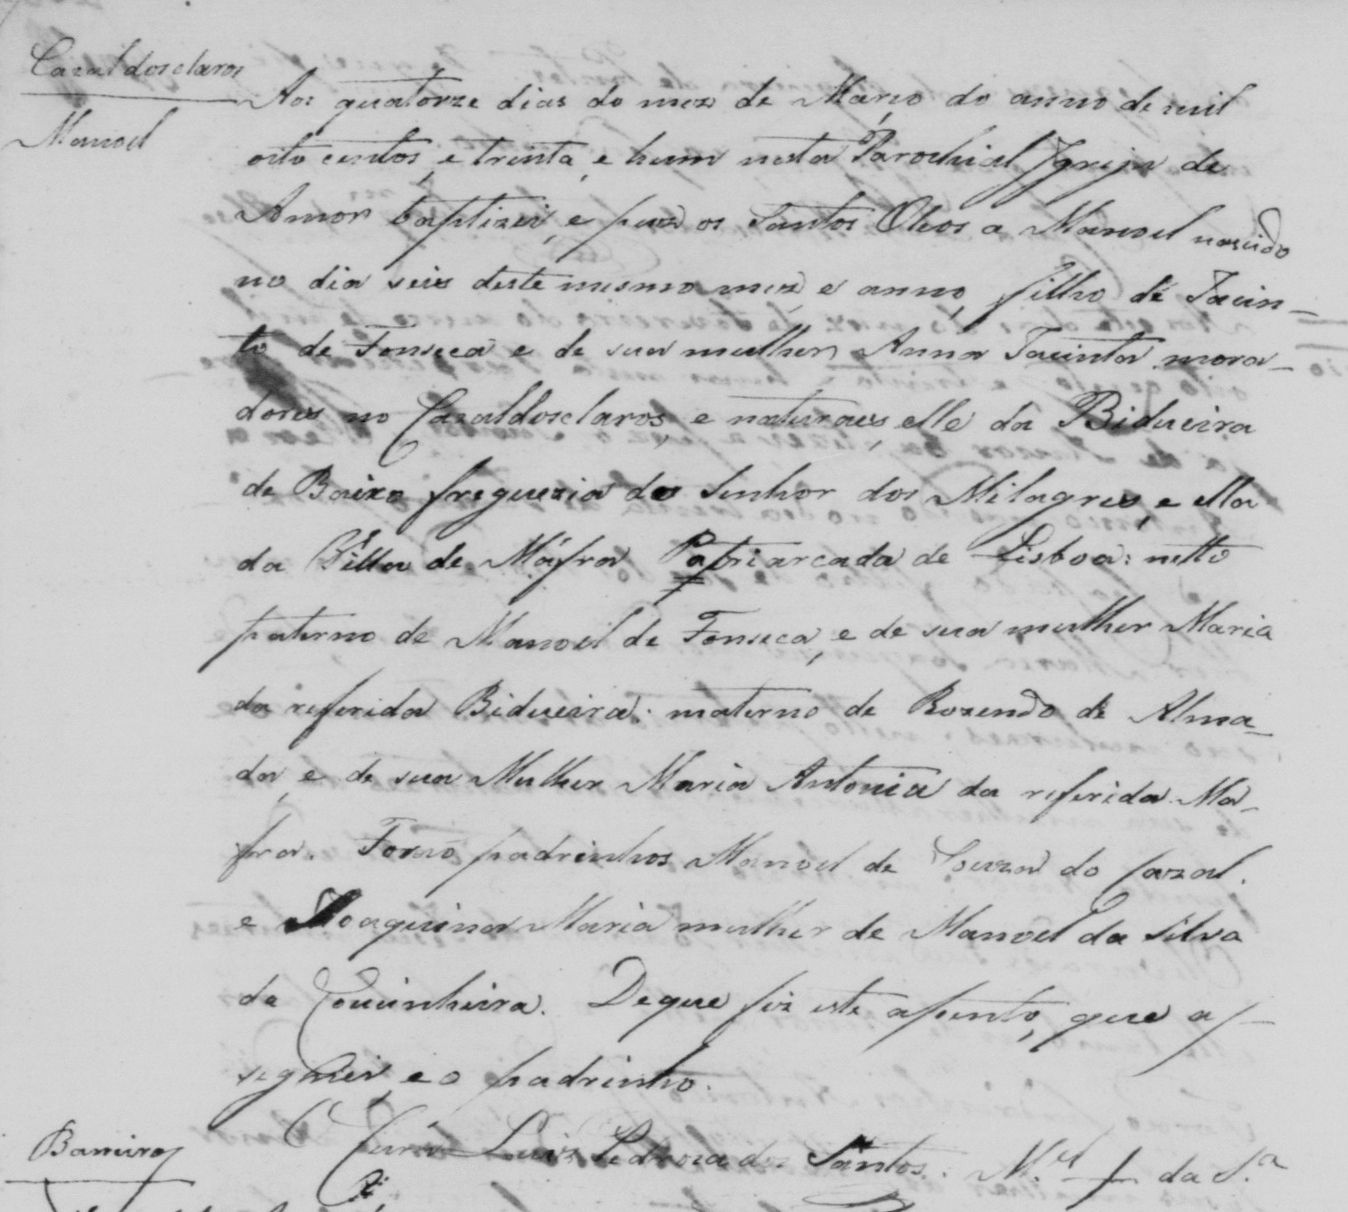 Cazaldosclaros
Manoel
Aos quatorze dias do mez de Março do anno de mil
oito centos, e trinta, e hum nesta Parochial Igreja de
Amor baptizei, e puz os Santos Oleos a Manoel nascido
no dia seis deste mesmo mez, e anno, filho de Jacin-
to de Fonseca e de sua mulher Anna Jacinta mora-
dores no Cazaldosclaros, e naturaes, elle da Bidueira
de Baixo freguezia do Senhor dos Milagres, e ella
da Villa de Máfra Patriarcada de Lisboa: netto
paterno de Manoel de Fonseca, e de sua mulher Maria
da referida Bidueira: materno de Rozendo de Alma-
da, e de sua Mulher Maria Antonia da referida Má-
fra. Forão padrinhos Manoel de Souza do Cazal.
e Joaquina Maria mulher de Manoel da Silva
da Coucinheira. De que fiz este assento, que as-
signei, e o padrinho.
O Cura Luiz Pedroza dos Santos. M.el + da S.ª
Barreiros